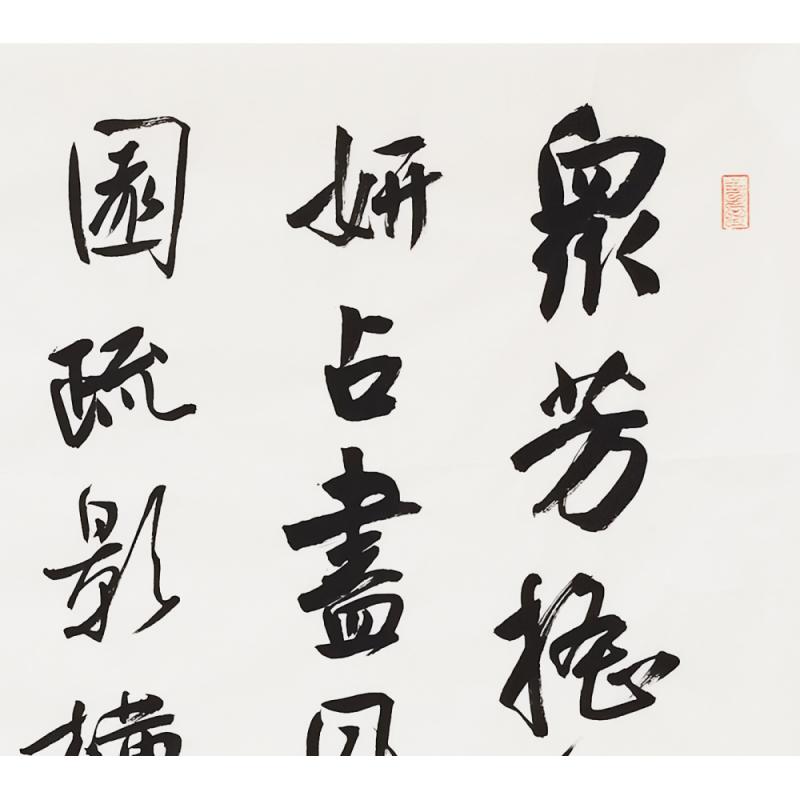 眾芳搖
妍占盡風
園疏影橫